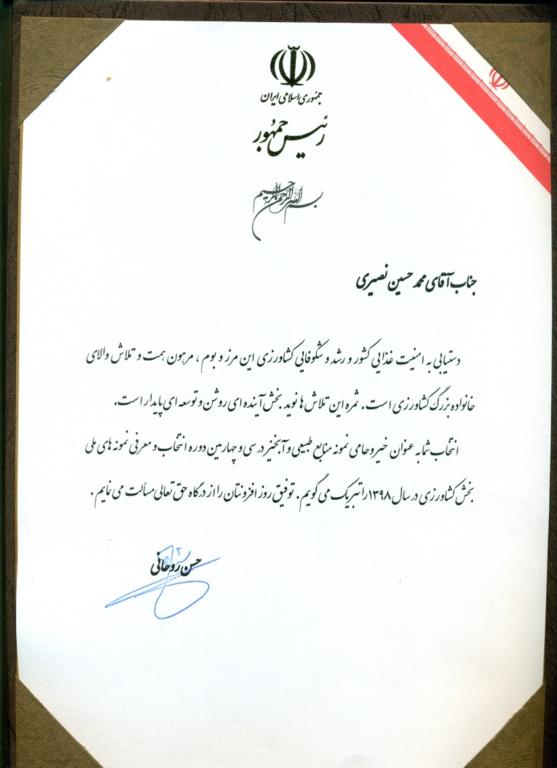 جمهوری اسلامی ایران
رئیس جمهور
بسم الله الرحمن الرحیم
جناب آقای محمد حسین نصیری
دستیابی به امنیت غذایی کشور و رشد و شکوفایی کشاورزی این مرز و بوم ، مرهون همت و تلاش والای
خانواده بزرگ کشاورزی است . ثمره این تلاش ها نوید بخش آینده ای روشن و توسعه ای پایدار است.
انتخاب شما به عنوان خیر و حامی نمونه منابع طبیعی و آبخیز در سی و چهارمین دوره انتخاب و معرفی نمونه های ملی
بخش کشاورزی در سال ۱۳۹۸ را تبریک می گویم . توفیق روز افزونتان را از درگاه حق تعالی مسألت می نمایم .
حسن روحانی